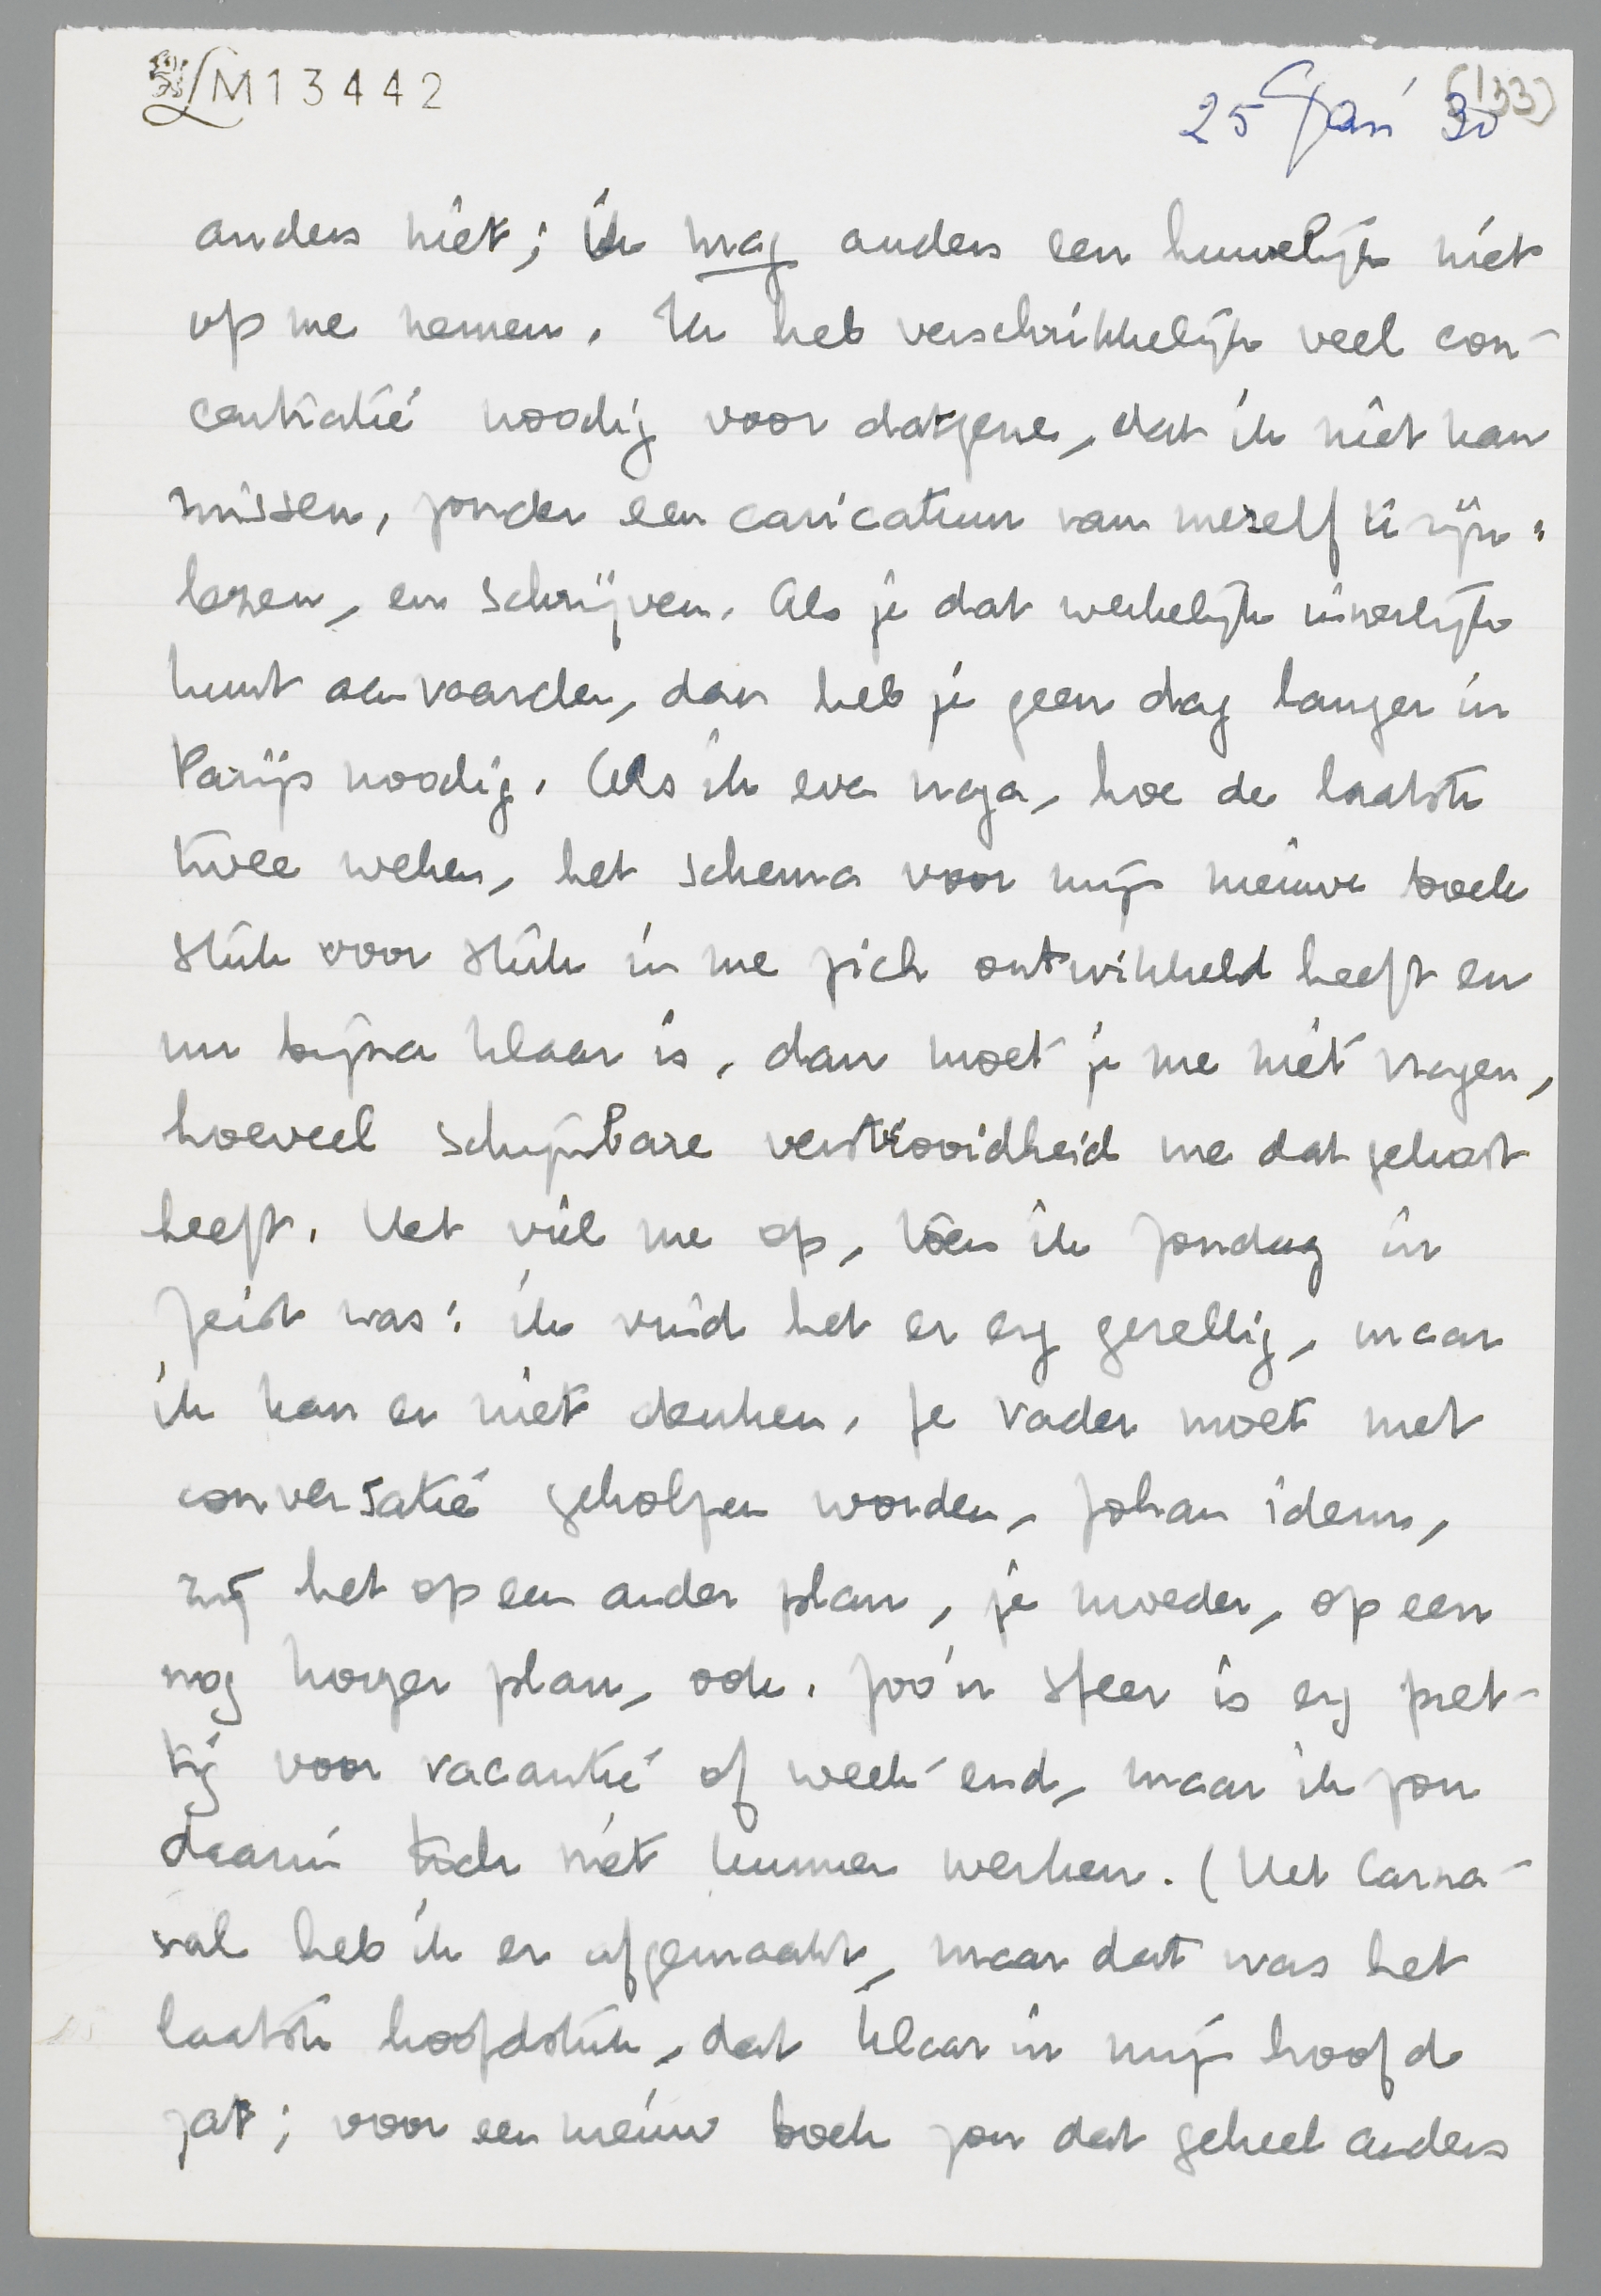 LM13442
(133)
25 Jan 30
anders niet; ik mag anders een huwelijk niet
op me nemen. Ik heb verschrikkelijk veel con-
centratie noodig voor datgene, dat ik niet kan
missen, zonder een caricatuur van mezelf te zijn:
lezen, en schrijven. Als je dat werkelijk innerlijk
kunt aanvaarden, dan heb je geen dag langer in
Parijs noodig. Als ik even naga, hoe de laatste
twee weken, het schema voor mijn nieuwe boek
stuk voor stuk in me zich ontwikkeld heeft en
nu bijna klaar is, dan moet je me niet vragen,
hoeveel schijnbare verstrooidheid me dat gekost
heeft. Het viel me op, toen ik Zondag in
Zeist was: ik vind het er erg gezellig, maar
ik kan er niet denken. Je vader moet met
conversatie geholpen worden, Johan idem,
zij het op een ander plan, je moeder, op een
nog hooger plan, ook. Zoo'n sfeer is erg pret-
tig voor vacantie of week-end, maar ik zou
daarin toch niet kunnen werken. (Het Carna-
val heb ik er afgemaakt, maar dat was het
laatste hoofdstuk, dat klaar in mijn hoofd
zat; voor een nieuw boek zou dat geheel anders